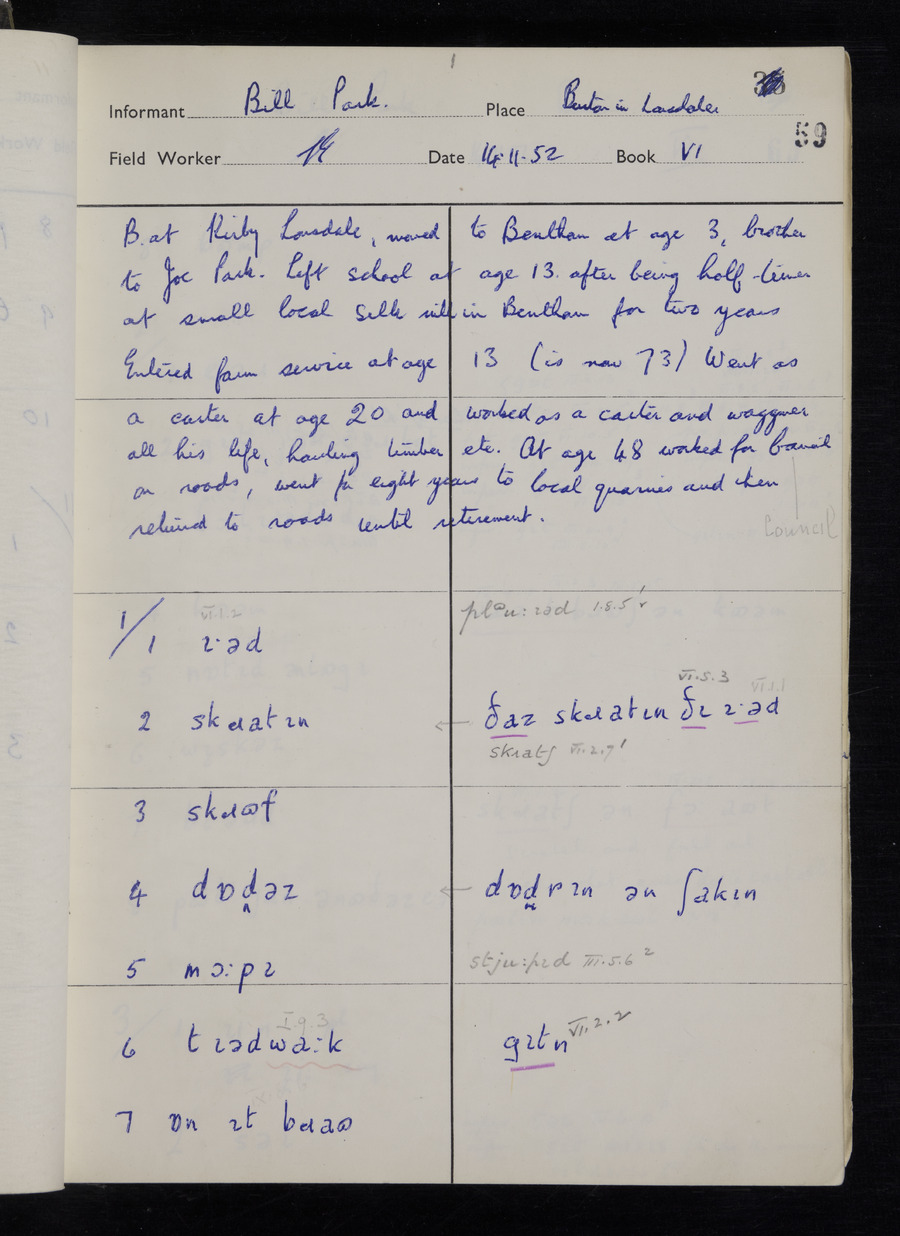 Informant Bill Park. Place Burton in Lonsdale
59
Field Worker Date 14.11.52 Book VI
B. at Kirby Lonsdale, moved to Bentham at age 3, brother
to Joe Park. Left school at age 13 after being half-timer
at small local silk mill in Bentham for two years
Entered farm service at age 13 (is now 73) Went as
a carter at age 20 and worked as a carter and waggoner
all his life, hauling timber etc. At age 48 worked for council
on roads, went for eight years to local quarries and then
retired to roads until retirement.
Council
1/ VI.1.2 1.8.5
1 ɪ·əd
VI.5.3 VI.1.1
2 skɹatɪn ← ðaz skɹatɪn ðɪ ɪ·əd
skɹatʃ VI.2.9
3 skɹʊf
4 dɒdəz ← dɒdɪn ən ʃakɪn
5 mɔ:pɪ stju:pɪd III.5.6²
I.9.3
6 tɪədwa:k gɪtn VI.2.2
7 ɒn ɪt bɹaʊ